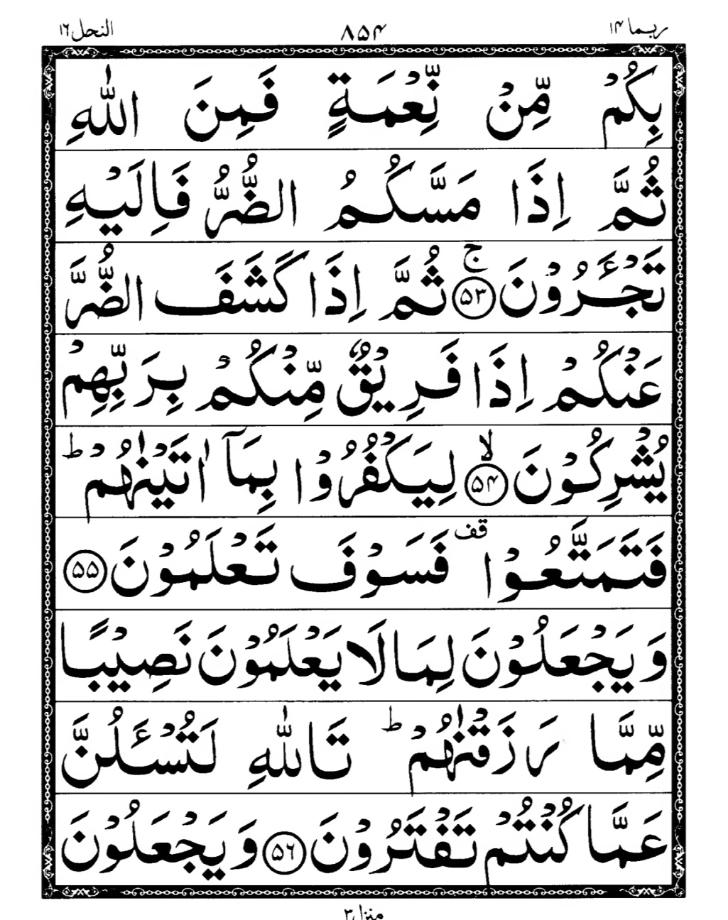 ربما ۱۴
۸۵۴
النحل ۱۶
بِكُمْ مِّنْ نِّعْمَةٍ فَمِنَ اللّٰهِ
ثُمَّ اِذَا مَسَّكُمُ الضُّرُّ فَاِلَيْهِ
تَجْـَٔرُوْنَ ۚ‏﴿۵۳﴾ ثُمَّ اِذَا كَشَفَ الضُّرَّ
عَنْكُمْ اِذَا فَرِيْقٌ مِّنْكُمْ بِرَبِّهِمْ
يُشْرِكُوْنَ ۙ‏﴿۵۴﴾ لِيَكْفُرُوْا بِمَاۤ اٰتَيْنٰهُمْ ؕ
فَتَمَتَّعُوْا قف فَسَوْفَ تَعْلَمُوْنَ ﴿۵۵﴾
وَيَجْعَلُوْنَ لِمَا لَا يَعْلَمُوْنَ نَصِيْبًا
مِّمَّا رَزَقْنٰهُمْ ؕ تَاللّٰهِ لَتُسْـَٔلُنَّ
عَمَّا كُنْتُمْ تَفْتَرُوْنَ ﴿۵۶﴾ وَيَجْعَلُوْنَ
منزل ۳